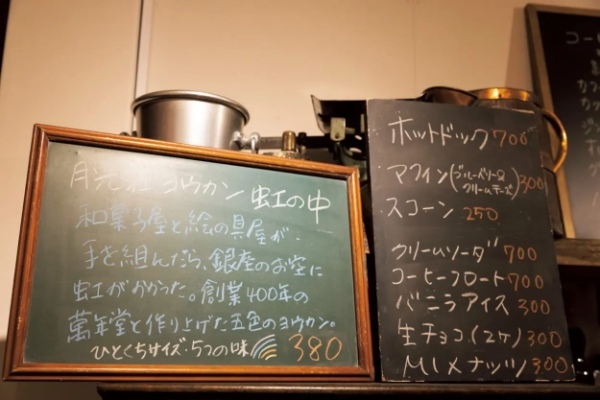 月光荘 ヨウカン 虹の中
和菓子屋と絵の具屋が、
手を組んだら、銀座のお空に
虹がかかった。創業400年の
萬年堂と作り上げた五色のヨウカン。
ひとくちサイズ・5つの味 380
ホットドック 700
マフィン(ブルーベリー&クリームチーズ) 300
スコーン 250
クリームソーダ 700
コーヒーフロート 700
バニラアイス 300
生チョコ(2ケ) 300
MIXナッツ 300
コー